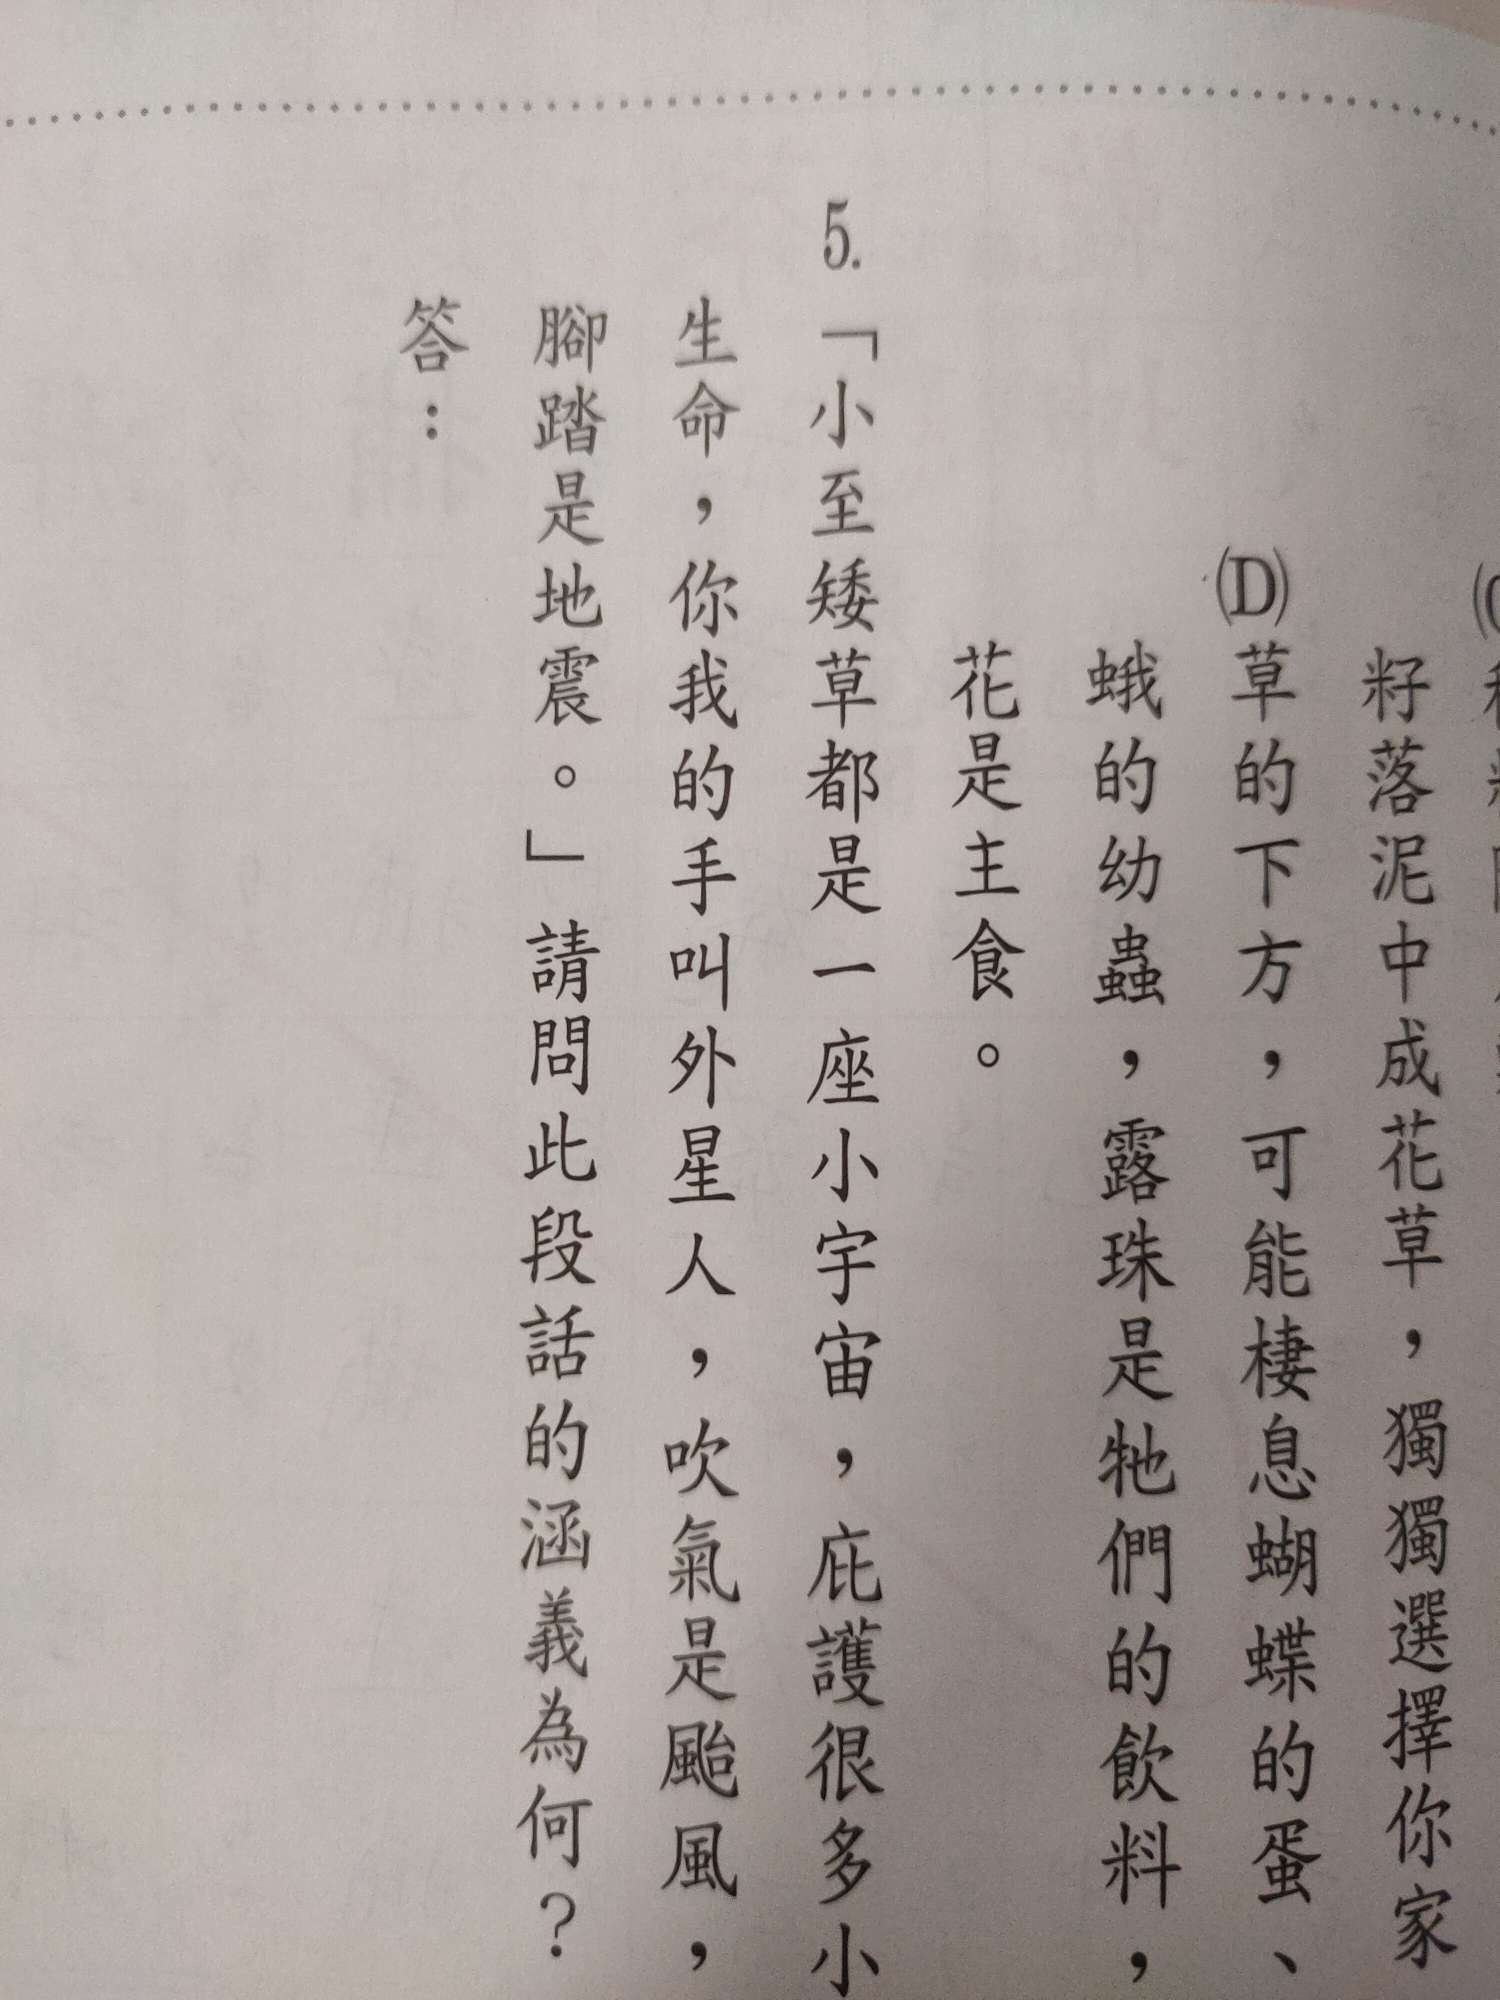 籽落泥中成花草，獨獨選擇你家
(D)草的下方，可能棲息蝴蝶的蛋、
蛾的幼蟲，露珠是牠們的飲料，
花是主食。
5.「小至矮草都是一座小宇宙，庇護很多小
生命，你我的手叫外星人，吹氣是颱風，
腳踏是地震。」請問此段話的涵義為何？
答：